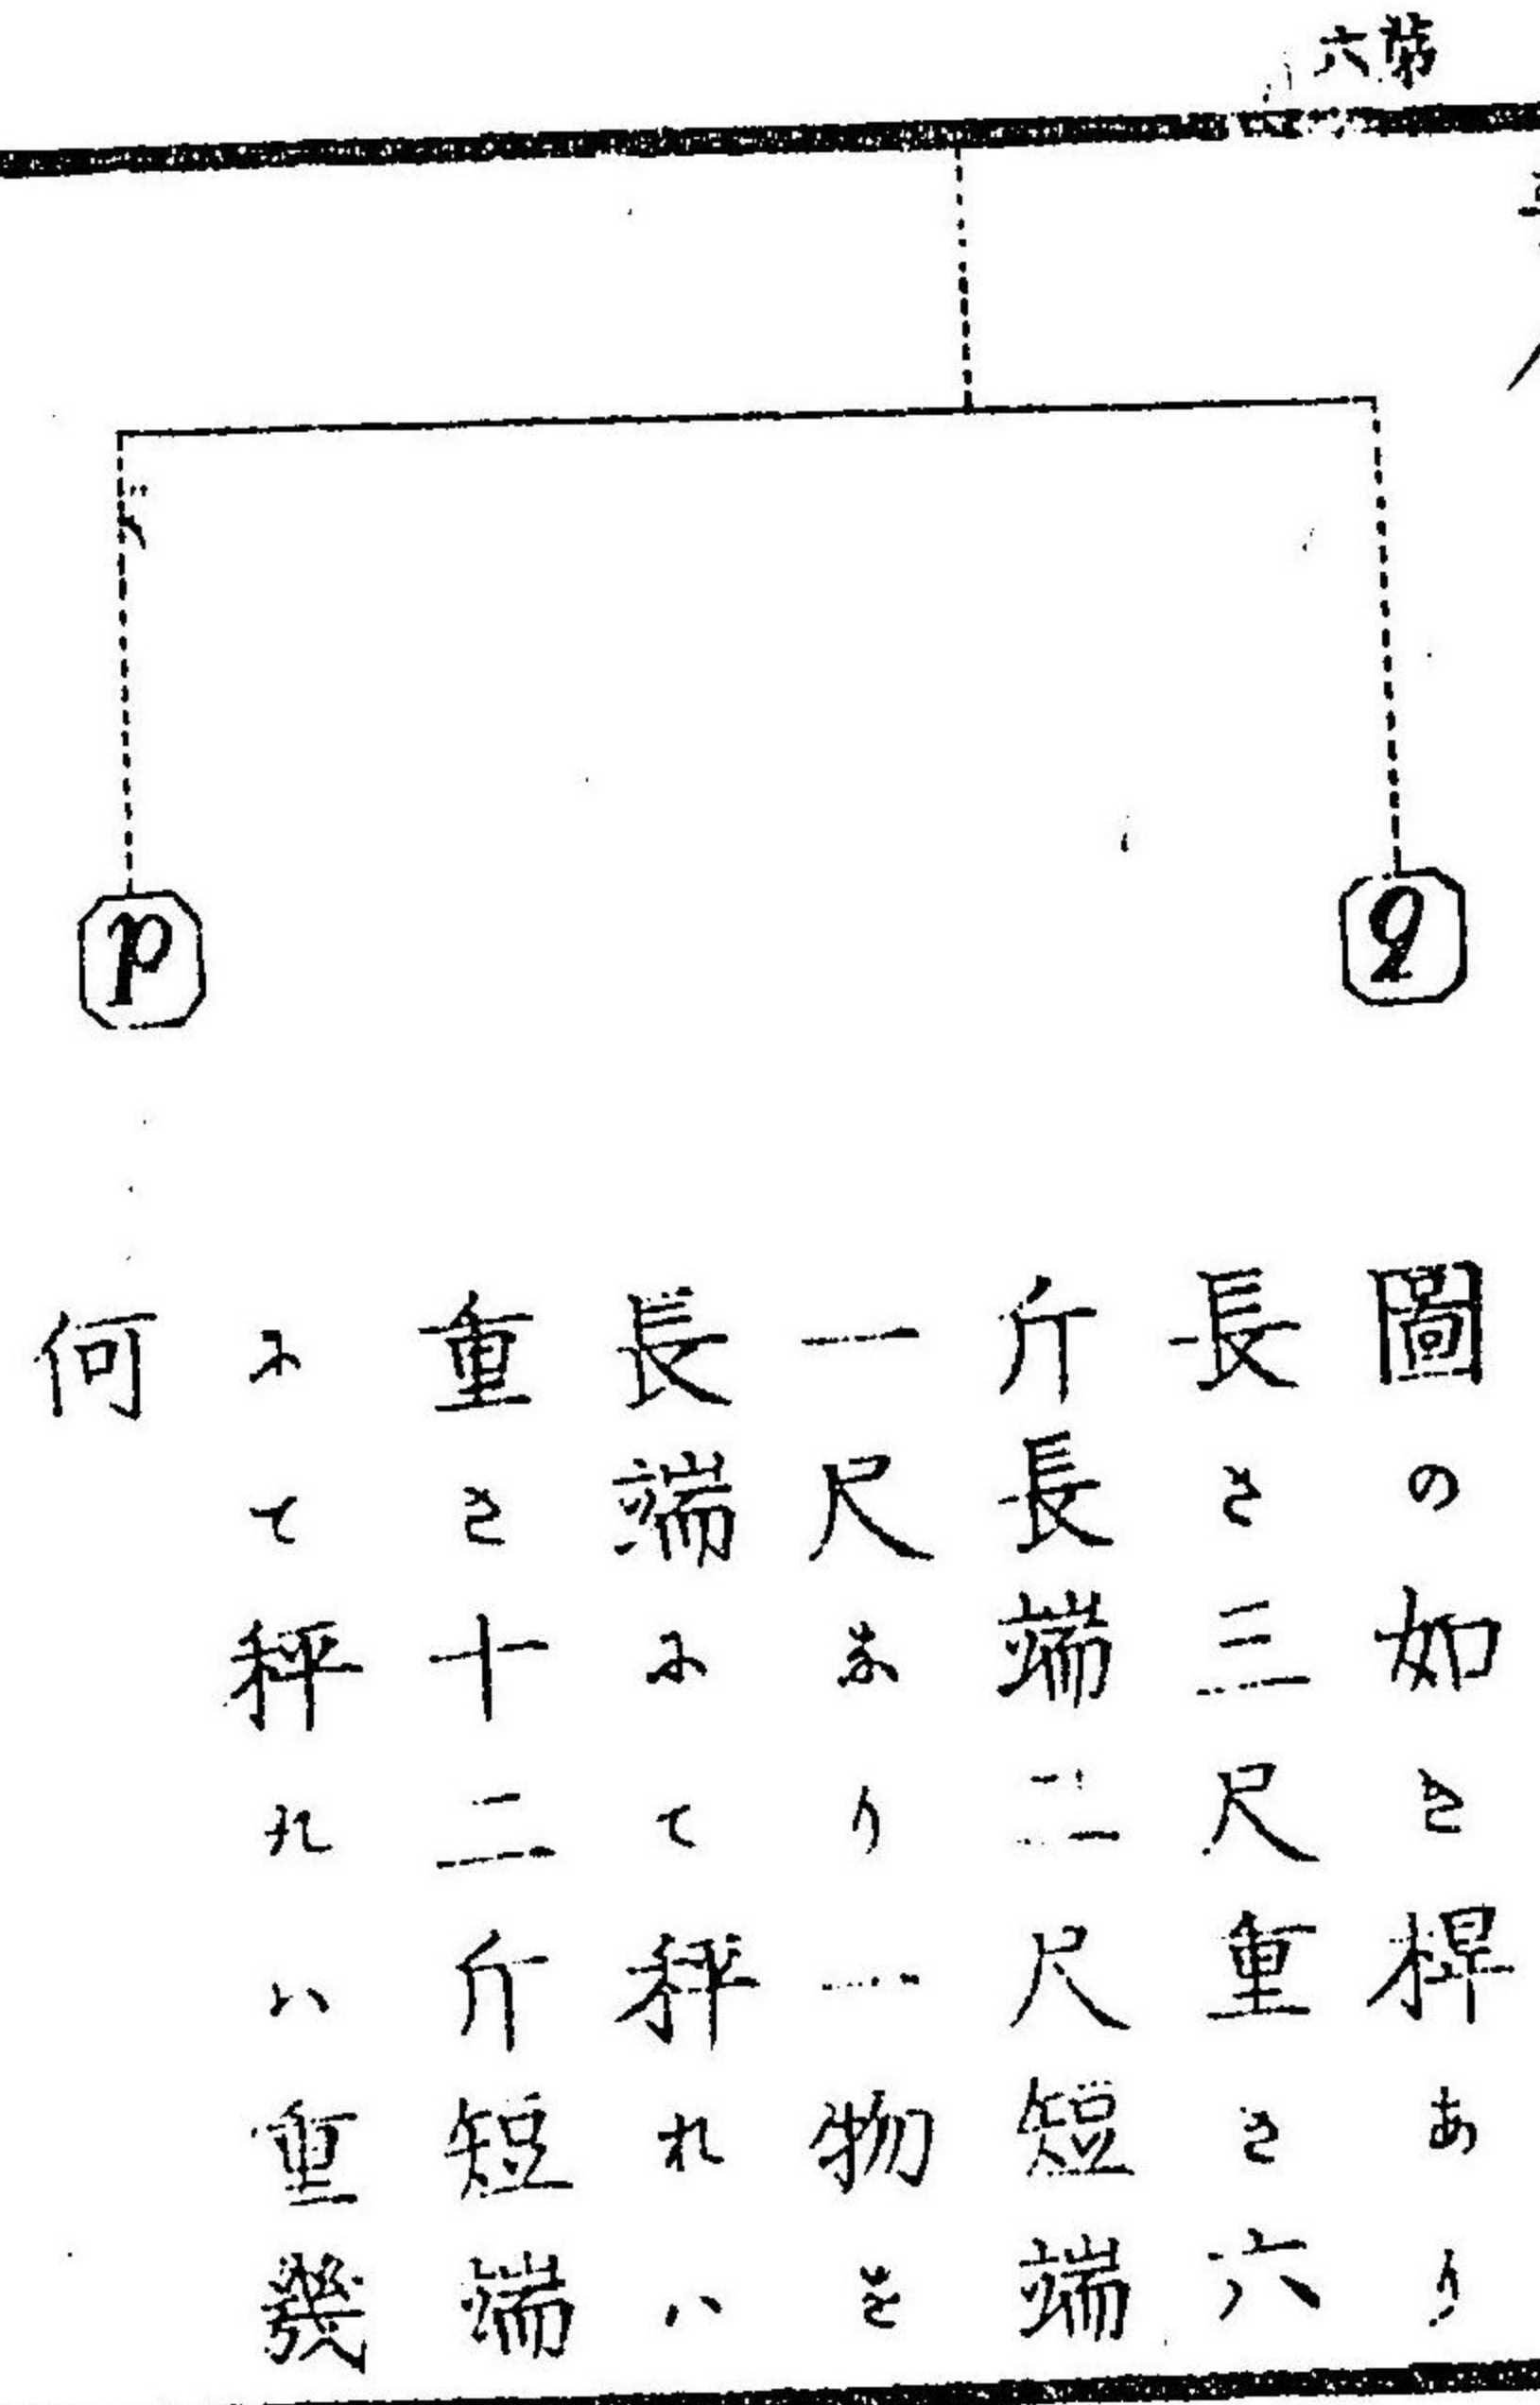 第六
p
q
圖の如き桿あり
長さ三尺重さ六
斤長端二尺短端
一尺なり一物を
長端にて秤れハ
重さ十二斤短端
にて秤れハ重幾
何